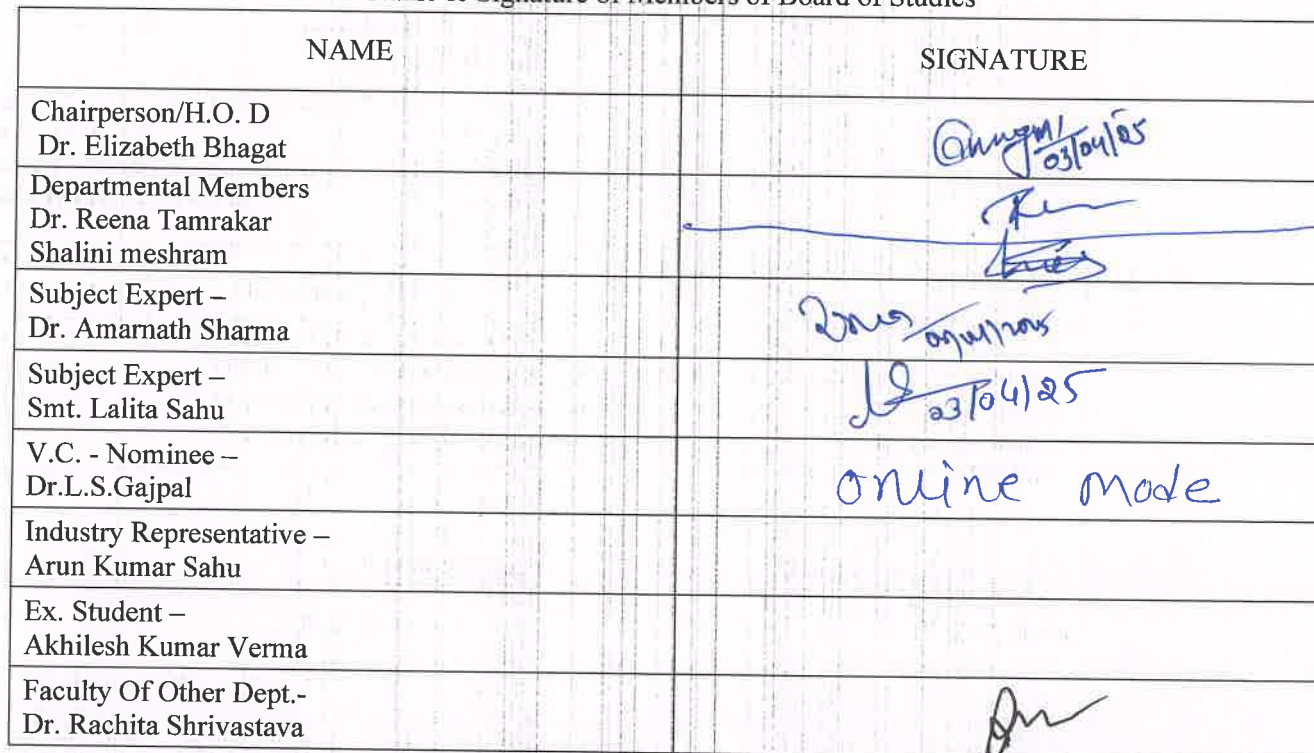 Signature of Members of Board of Studies
NAME SIGNATURE
Chairperson/H.O. D
Dr. Elizabeth Bhagat
03/04/25
Departmental Members
Dr. Reena Tamrakar
Shalini meshram
Subject Expert –
Dr. Amarnath Sharma
Subject Expert –
Smt. Lalita Sahu
03/04/25
V.C. - Nominee –
Dr.L.S.Gajpal
online mode
Industry Representative –
Arun Kumar Sahu
Ex. Student –
Akhilesh Kumar Verma
Faculty Of Other Dept.-
Dr. Rachita Shrivastava